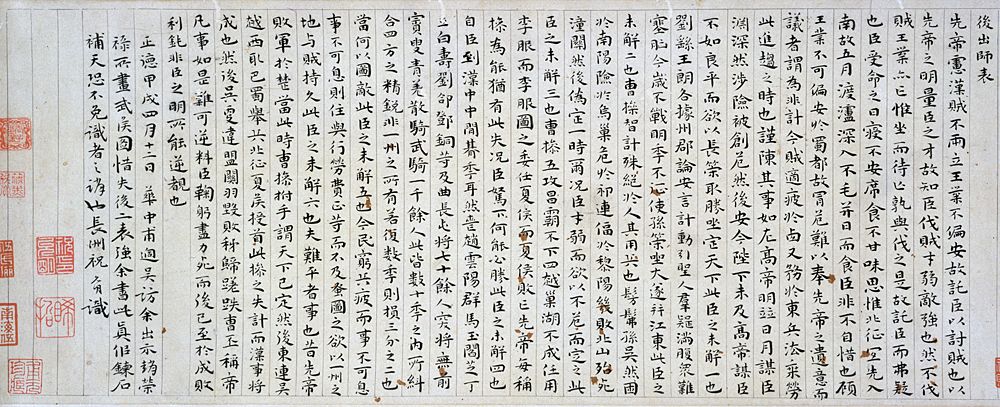 後出師表
先帝慮漢賊不兩立王業不偏安故託臣以討賊也以
先帝之明量臣之才故知臣伐賊才弱敵強也然不伐
賊王業亦亡惟坐而待亡孰與伐之是故託臣而弗疑
也臣受命之日寢不安席食不甘味思惟北征宜先入
南故五月渡瀘深入不毛并日而食臣非不自惜也顧
王業不可偏安於蜀都故冒危難以奉先帝之遺意而
議者謂為非計今賊適疲於西又務於東兵法乘勞
此進趨之時也謹陳其事如左高帝明並日月謀臣
淵深然涉險被創危然後安今陛下未及高帝謀臣
不如良平而欲以長策取勝坐定天下此臣之未解一也
劉繇王朗各據州郡論安言計動引聖人羣疑滿腹衆難
塞胸今歲不戰明年不征使孫策坐大遂并江東此臣之
未解二也曹操智計殊絕於人其用兵也髣髴孫吳然困
於南陽險於烏巢危於祁連偪於黎陽幾敗北山殆死
潼關然後偽定一時爾況臣才弱而欲以不危而定之此
臣之未解三也曹操五攻昌霸不下四越巢湖不成任用
李服而李服圖之委任夏侯而夏侯敗亡先帝每稱
操為能猶有此失況臣駑下何能必勝此臣之未解四也
自臣到漢中中間朞年耳然喪趙雲陽群馬玉閻芝丁
立白壽劉郃鄧銅等及曲長屯將七十餘人突將無前
賨叟青羌散騎武騎一千餘人此皆數十年之內所糾
合四方之精銳非一州之所有若復數年則損三分之二也
當何以圖敵此臣之未解五也今民窮兵疲而事不可息
事不可息則住與行勞費正等而不及蚤圖之欲以一州之
地与賊持久此臣之未解六也夫難平者事也昔先帝
敗軍於楚當此時曹操拊手謂天下已定然後東連吳
越西取巴蜀舉兵北征夏侯授首此操之失計而漢事將
成也然後吳更違盟關羽毀敗秭歸蹉跌曹丕稱帝
凡事如是難可逆料臣鞠躬盡力死而後已至於成敗
利鈍非臣之明所能逆覩也
正德甲戌四月十二日華中甫過吳訪余出示趙榮
祿所畫武侯圖惜失後二表強余書此真作鍊石
補天恐不免識者之誚也長州祝允明識